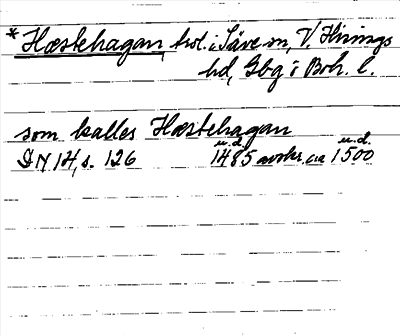 *Hæstehagan, trol. i Säve sn, V. Hisings
hd, Gbg o Boh. l.
som kalles Hæstehagan
u.d. u.d.
DN 14, s. 126 1485 avskr. ca 1500